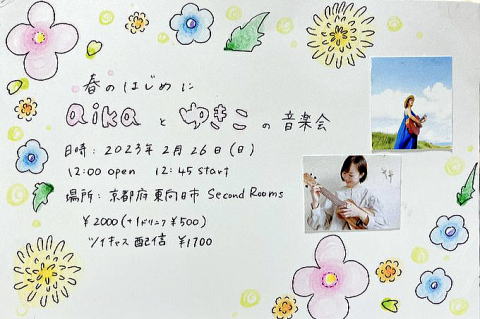 春のはじめに
aikaとゆきこの音楽会
日時：2023年2月26日(日)
12:00 open 12:45 start
場所：京都府東向日市 Second Rooms
¥2000(+1ドリンク¥500)
ツイキャス配信 ¥1700